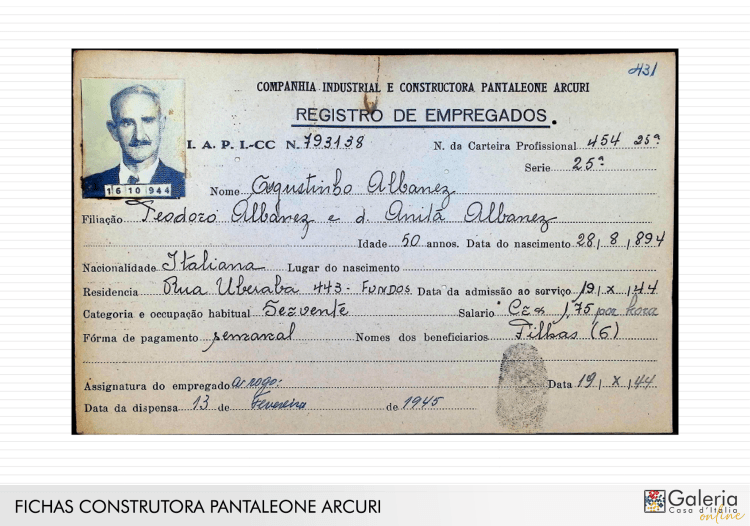 431
COMPANHIA INDUSTRIAL E CONSTRUCTORA PANTALEONE ARCURI
REGISTRO DE EMPREGADOS.
I. A. P. I.-CC N. 793138 N. da Carteira Profissional 454 25ª
Serie 25ª
16 10 944
Nome Agustinho Albanez
Filiação Teodoro Albanez e d. Anita Albanez
Idade 50 annos. Data do nascimento 28/8/894
Nacionalidade Italiana Lugar do nascimento
Residencia Rua Uberaba 443- FUNDOS Data da admissão ao serviço 19/X/44
Categoria e occupação habitual Servente Salario Cr$ 1,75 por hora
Fórma de pagamento semanal Nomes dos beneficiarios Filhas (6)
Assignatura do empregado a rogo: Data 19/X/44
Data da dispensa 13 de Fevereiro de 1945
FICHAS CONSTRUTORA PANTALEONE ARCURI
Galeria
Casa d'Italia
online